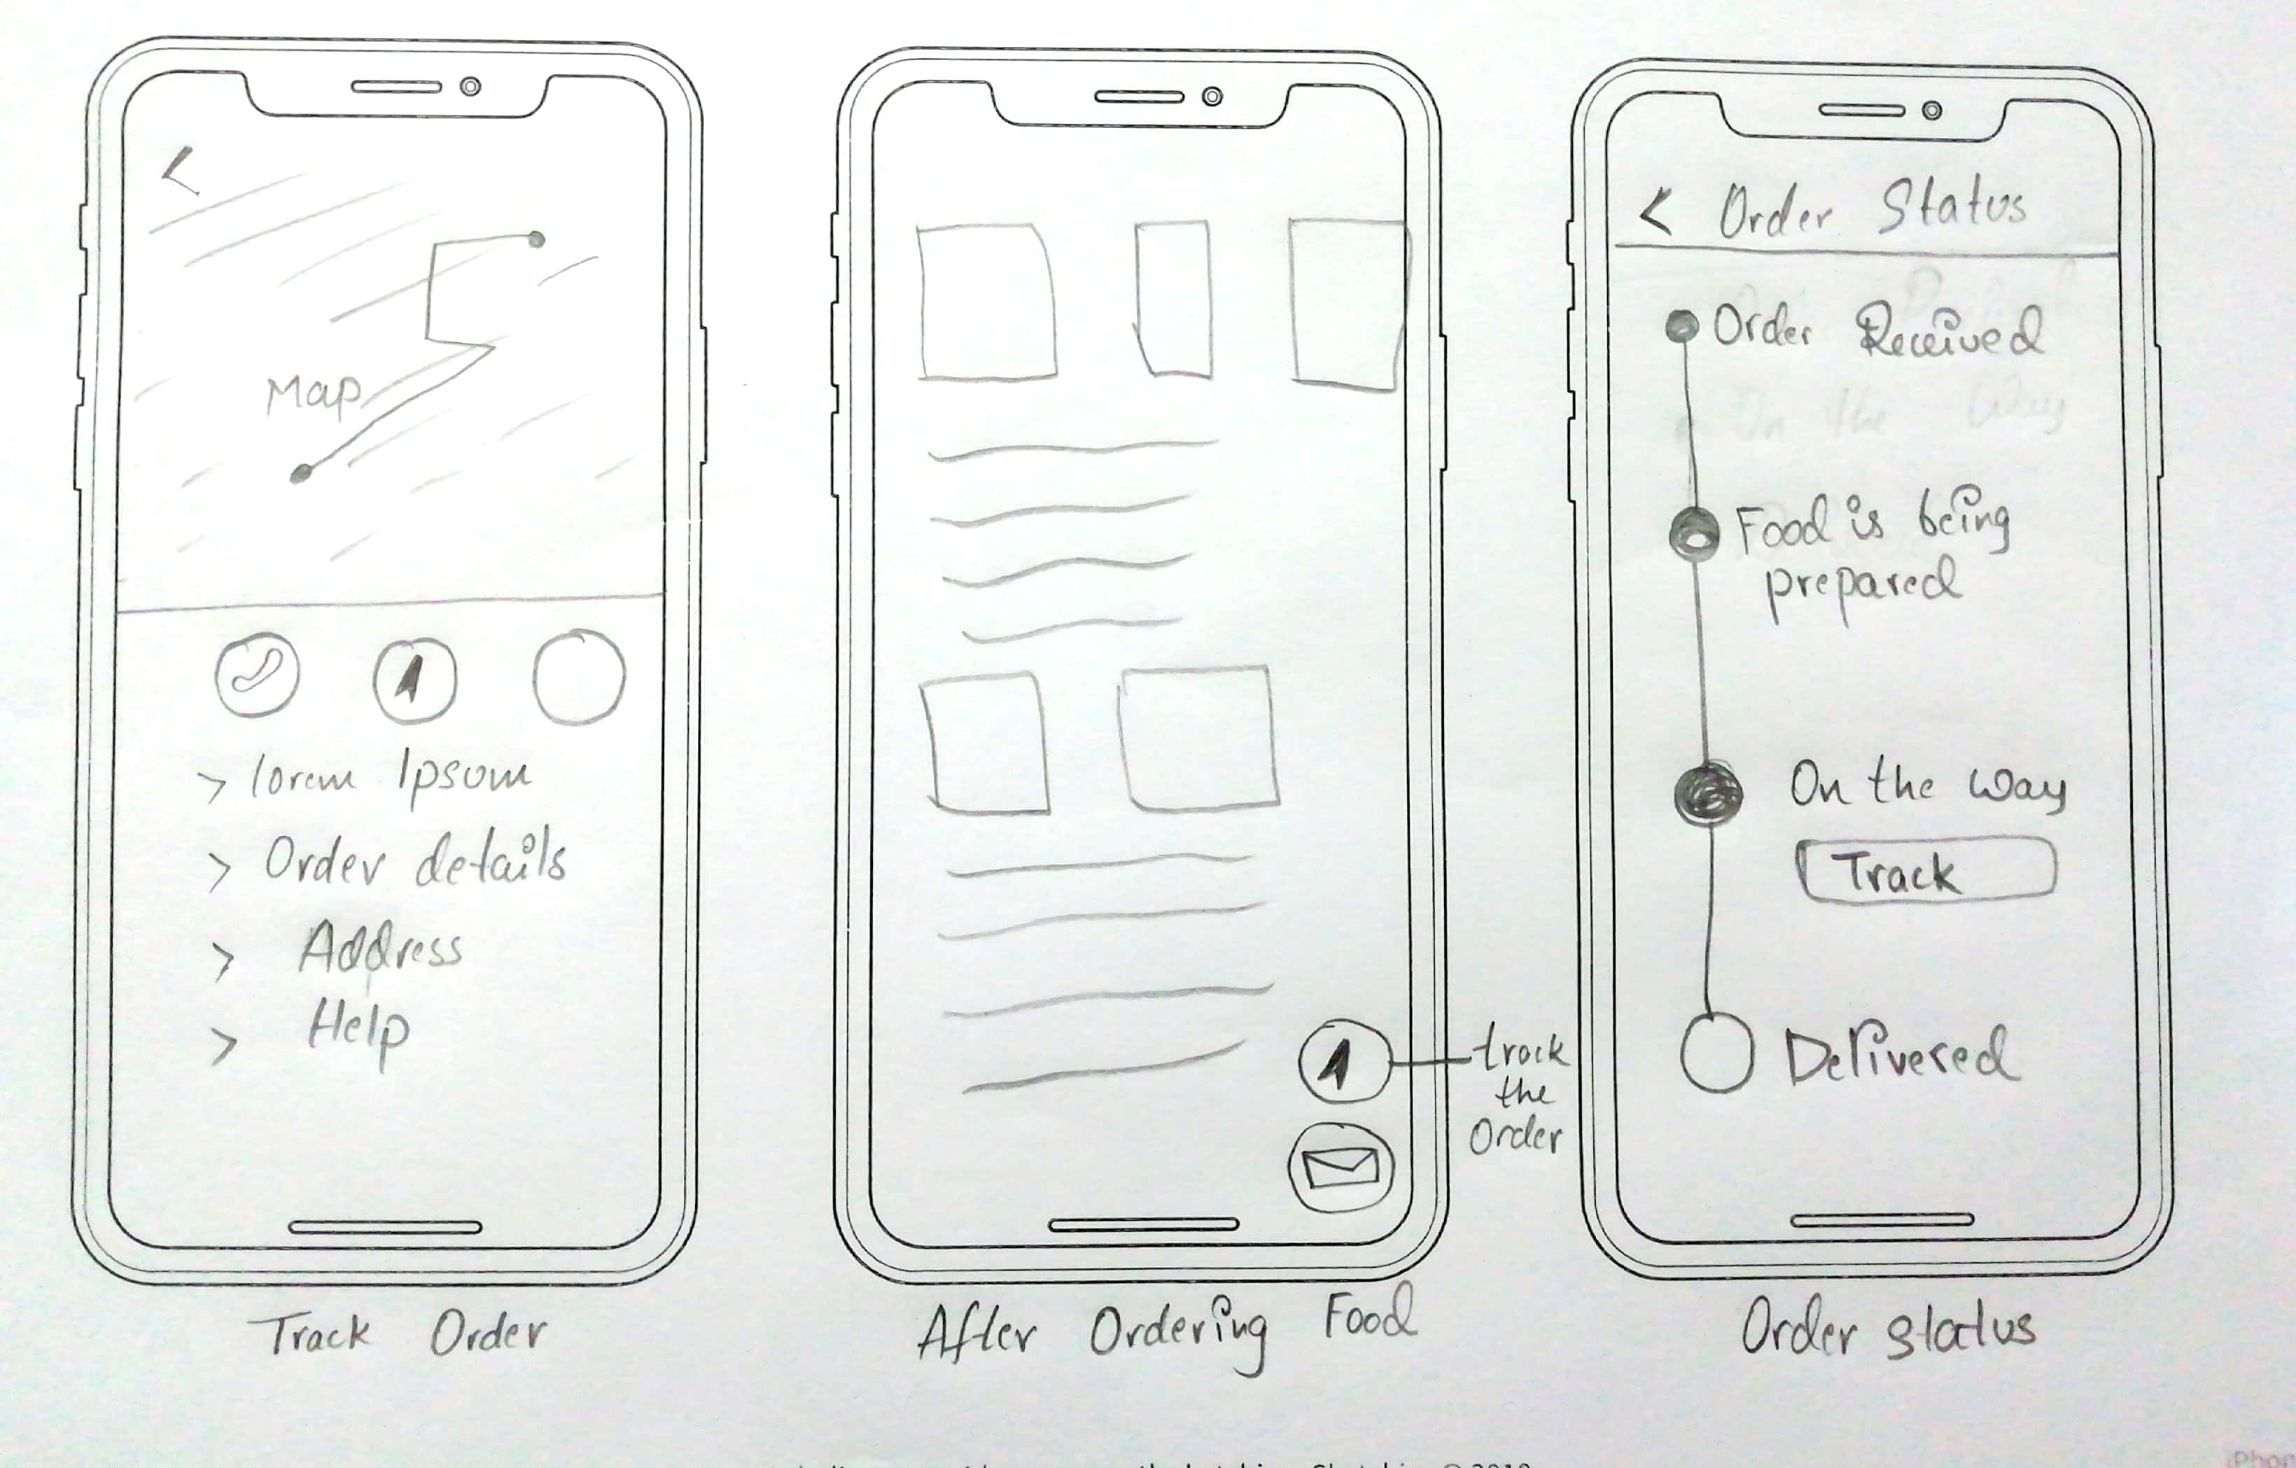 Map
lorem Ipsum
Order details
Address
Help
Track Order
track
the
Order
After Ordering Food
Order Status
Order Received
On the Way
Food is being
prepared
On the way
Track
Delivered
Order status